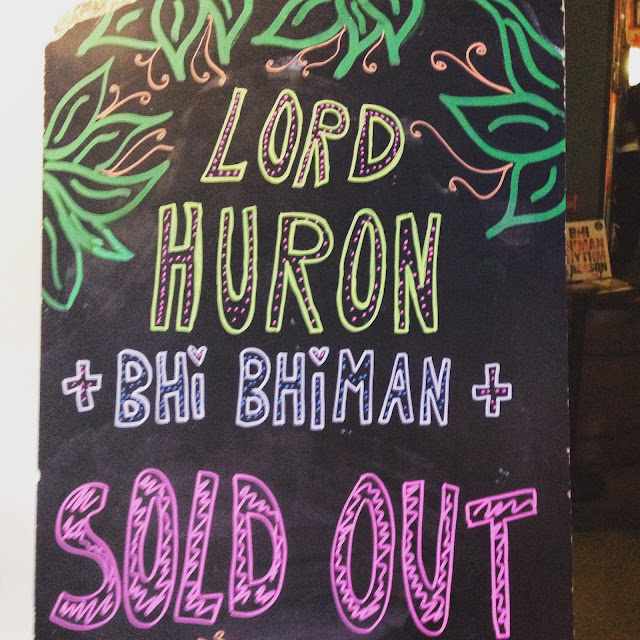 LORD
HURON
+ BHi BHiMAN +
SOLD OUT
BHI